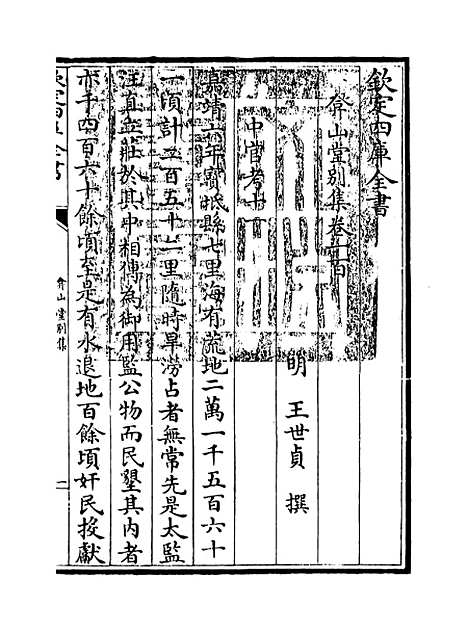 欽定四庫全書
弇山堂別集卷一百
明 王世貞 撰
中官考十一
嘉靖二年寳坻縣七里海有荒地二萬一千五百六十
一頃計二百五十一里隨時旱澇占者無常先是太監
汪直立莊於其中相傳為御用監公物而民墾其内者
亦千四百六十餘頃至是有水退地百餘頃奸民投獻
欽定四庫全書
弇山堂別集